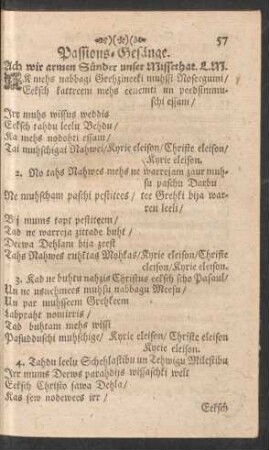 57
Passions-Gesänge.
Ach wir armen Sünder unser Missethat. L.M.
mehs nabbagi Grehzineeki muhsu Noseegumi/
Eeksch kattreem mehs eenemti un peedsimmuschi essam/
Irr muhs wissus weddis
Eeksch tahdu leelu Behdu/
Ka mehs nodohti essam/
Tai muhschigai Nahwei/ Kyrie eleison/ Christe eleison/
Kyrie eleison.
2. No tahs Nahwes mehs ne warrejam zaur muhsu paschu Darbu
Ne muhscham paschi pestitees/ tee Grehki bija warren leeli/
Bij mums tapt pestiteem/
Tad ne warreja zittade buht/
Deewa Dehlam bija zeest
Tahs Nahwes ruhktas Mohkas/ Kyrie eleison/ Christe
eleison/ Kyrie eleison.
3. Kad ne buhtu nahzis Christus eeksch scho Pasaul/
Un ne usnehmees muhsu nabbagu Meesu/
Un par muhsseem Grehkeem
labpraht nomirris/
Tad buhtam mehs wissi
Pasudduschi muhschige/ Kyrie eleison/ Christe eleison
Kyrie eleison.
4. Tahdu leelu Schehlastibu un Tehwigu Milestibu
Irr mums Deews parahdijs wissaschki welt
Eeksch Christo sawa Dehla/
Kas sew nodewees irr/
Eeksch